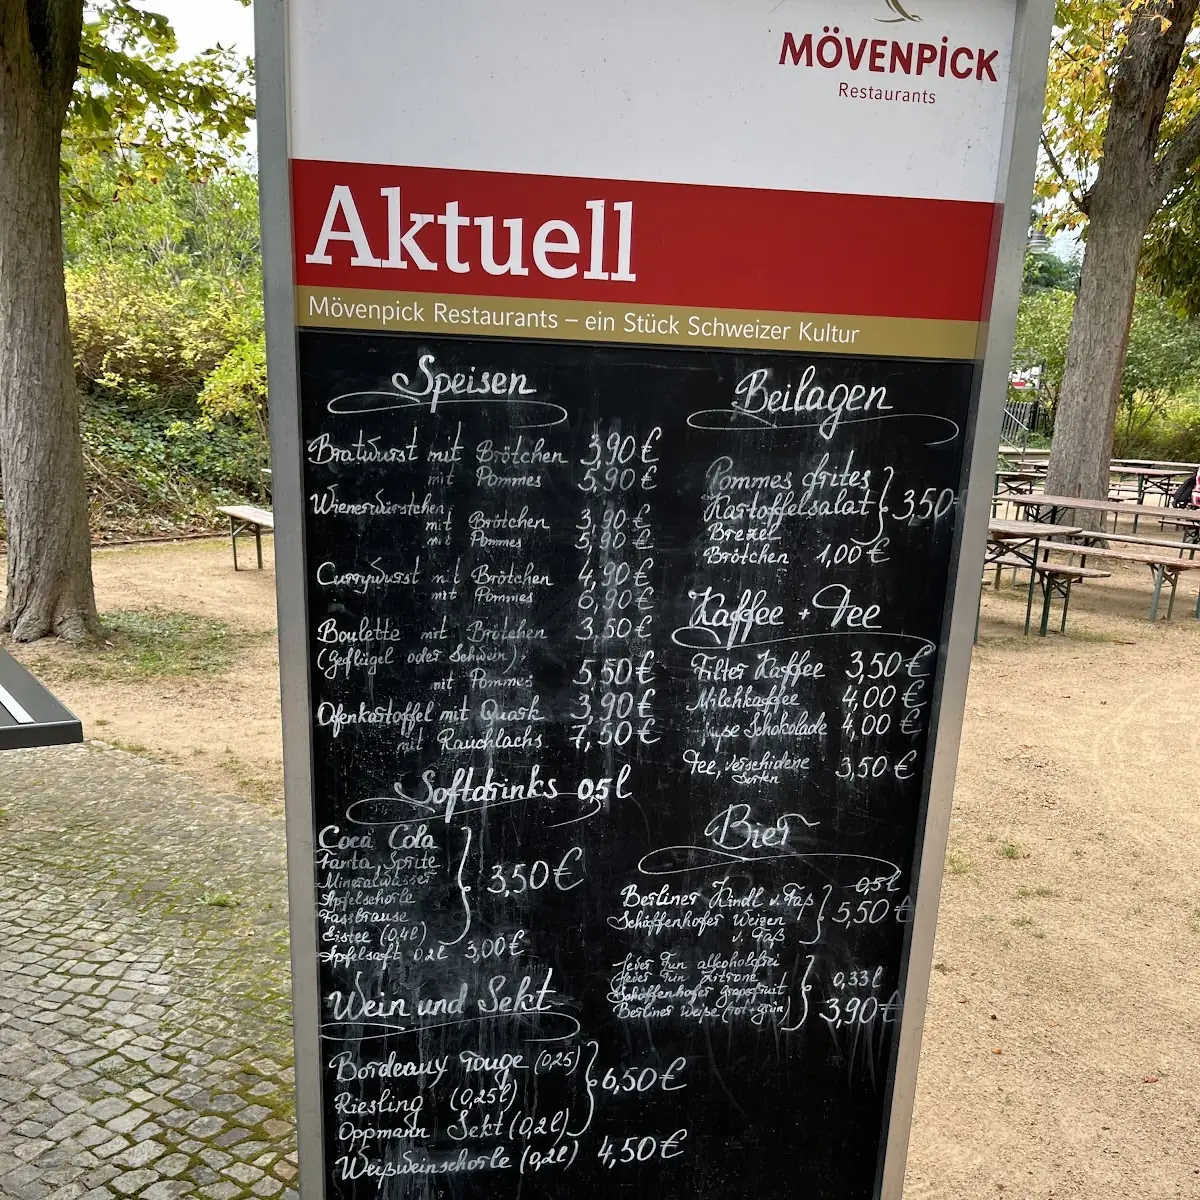 MÖVENPICK
Restaurants
Aktuell
Mövenpick Restaurants – ein Stück Schweizer Kultur
Speisen
Bratwurst mit Brötchen 3,90 €
mit Pommes 5,90 €
Wienerwürstchen
mit Brötchen 3,90 €
mit Pommes 5,90 €
Currywurst mit Brötchen 4,90 €
mit Pommes 6,90 €
Boulette mit Brötchen 3,50 €
(Geflügel oder Schwein)
mit Pommes 5,50 €
Ofenkartoffel mit Quark 3,90 €
mit Rauchlachs 7,50 €
Softdrinks 0,5 l
Coca Cola
Fanta, Sprite
Mineralwasser
Apfelschorle
Fassbrause
Eistee (0,4l)
3,50 €
Apfelsaft 0,2l 3,00 €
Wein und Sekt
Bordeaux rouge (0,25)
Riesling (0,25l)
Oppmann Sekt (0,2l)
6,50 €
Weißweinschorle (0,2l) 4,50 €
Beilagen
Pommes frites
Kartoffelsalat
3,50
Brezel
Brötchen 1,00 €
Kaffee + Tee
Filter Kaffee 3,50 €
Milchkaffee 4,00 €
Schokolade 4,00 €
Tee, verschidene
Sorten
3,50 €
Bier
0,5 l
Berliner Kindl v. Faß
Schöffenhofer Weizen
v. Faß
5,50 €
Jever Fun alkoholfrei
Jever Fun Zitrone
Schöffenhofer Grapefruit
Berliner Weiße (rot+grün)
0,33 l
3,90 €